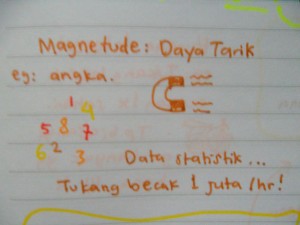 Magnetude: Daya Tarik
eg: angka.
1 4
5 8 7
6 2 3
Data statistik...
Tukang becak 1 juta/hr!